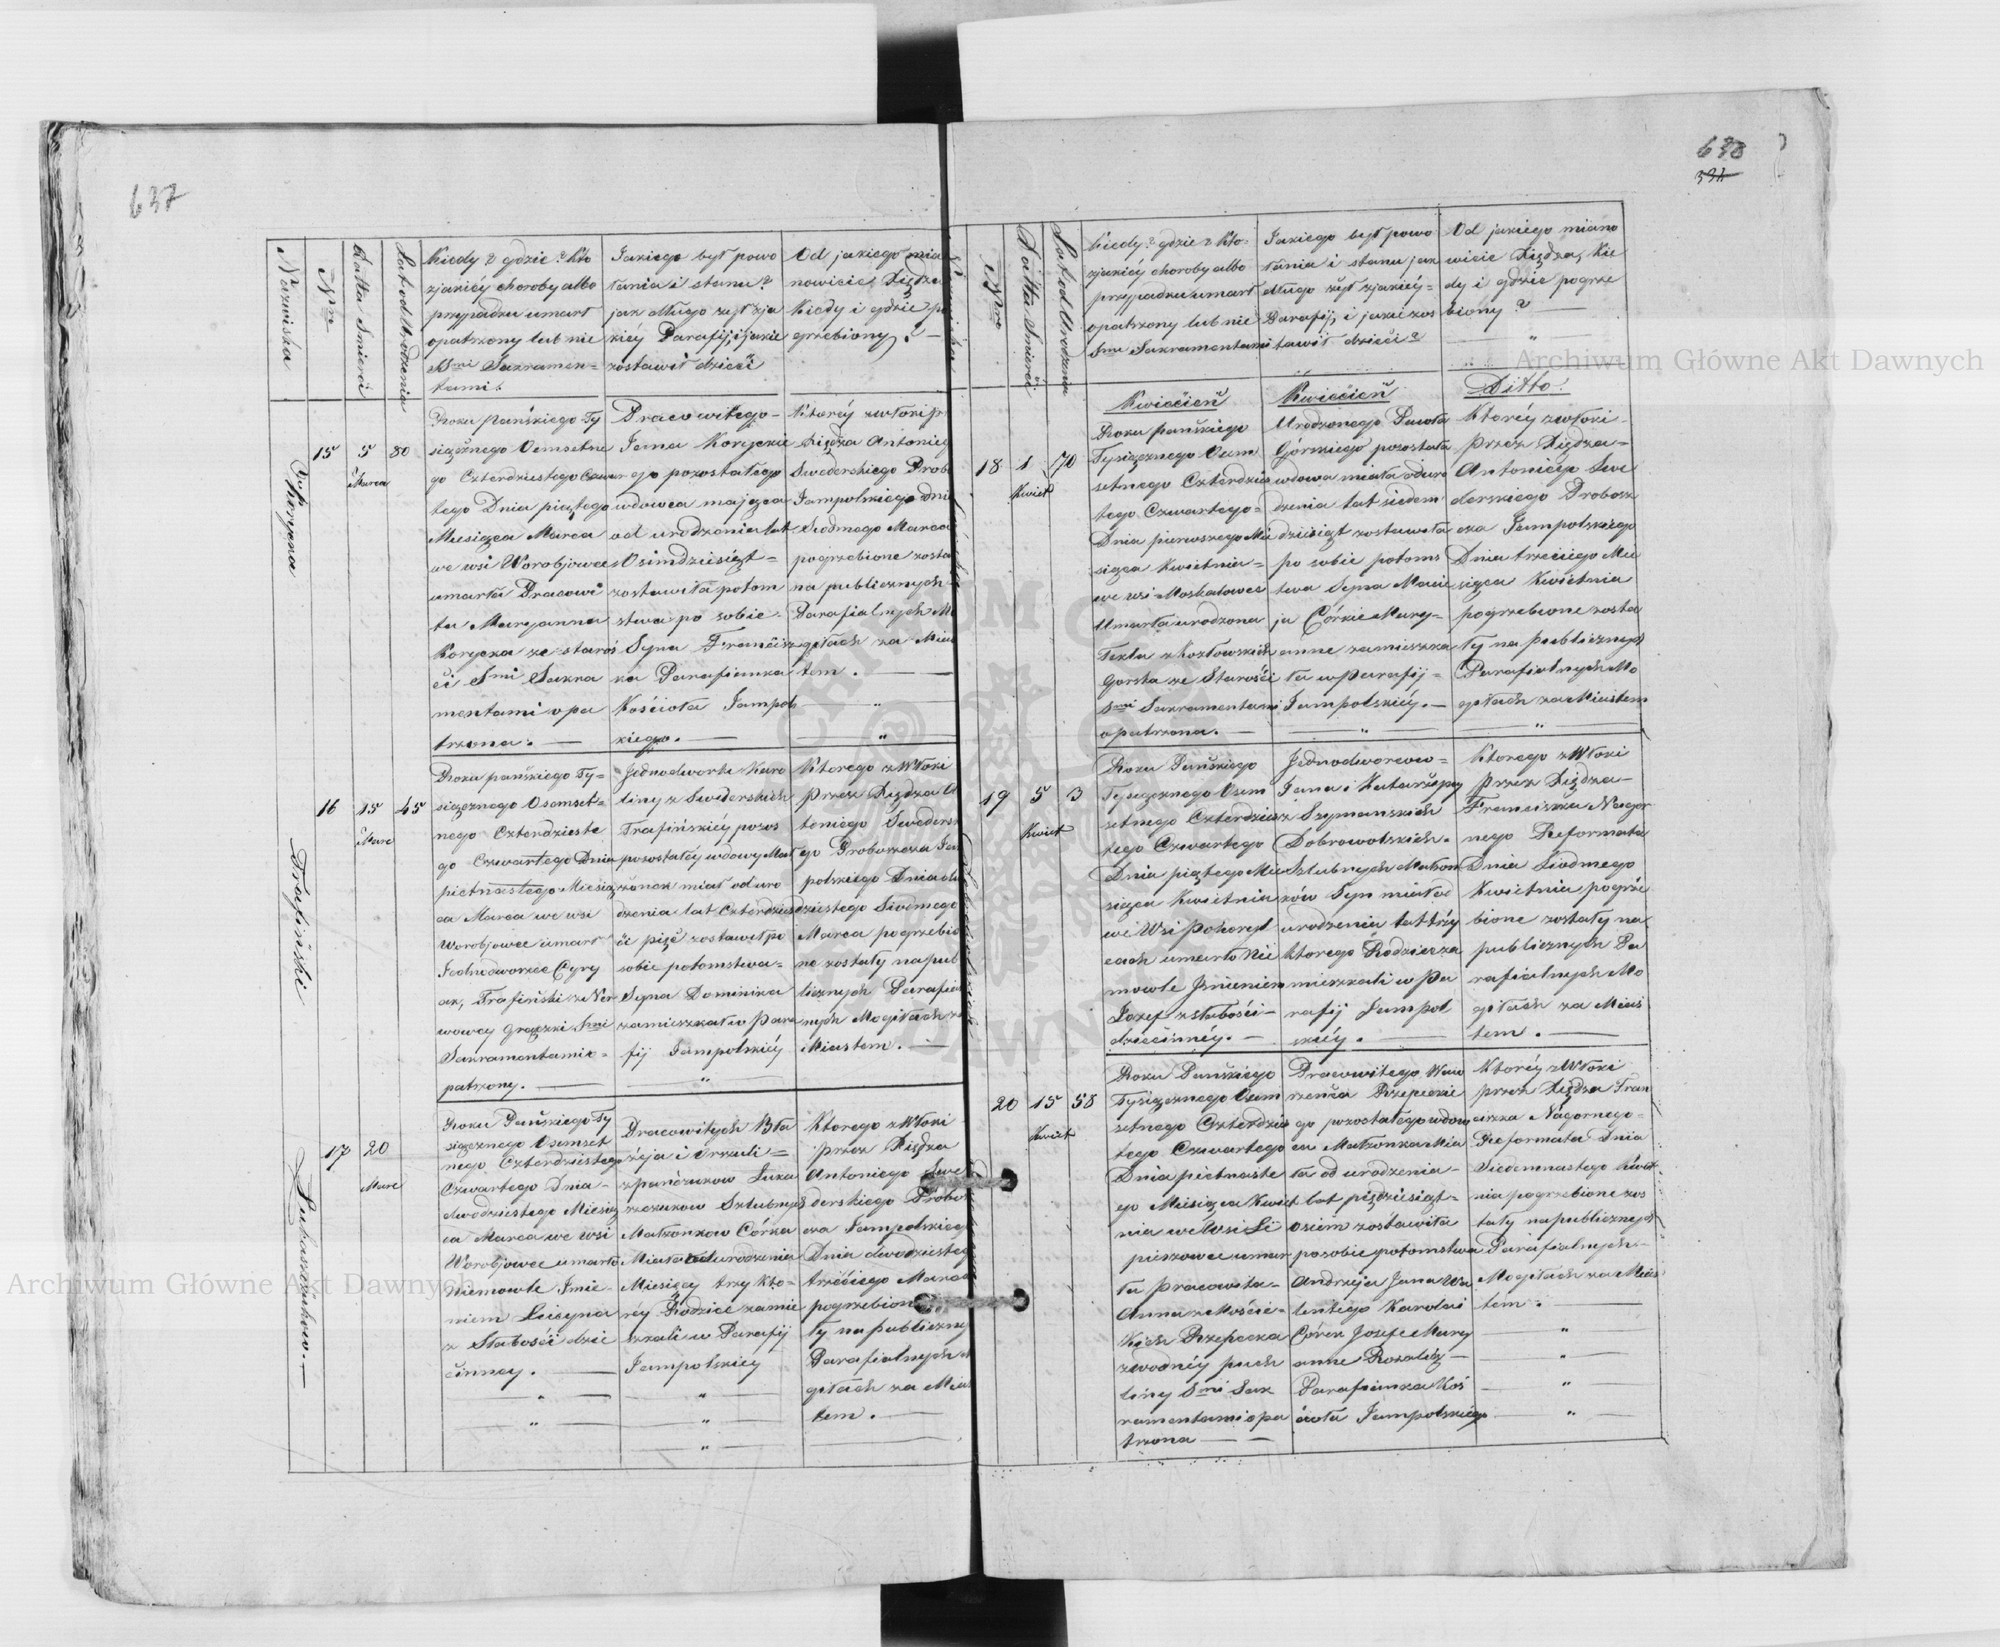 637
638
334
Nazwiska
Nro
Datta Smierci
Lat od Urodzenia
Kiedy? gdzie? kto
zjakiéy choroby albo
przypadku umarł
opatrzony lub nie
SSmi Sakramen=
tami.
Jakiego był powo
łania i stanu?
jak długo żył zja
kiéy Parafij, i jakie
zostawił dzieci
Od jakiego mia
nowicie, Xiędza
Kiedy i gdzie? po
grzebiony?
15
5
Marca
80
Roku Pańskiego Ty
siącznego Osmsetne
go Czterdziestego Czwar
tego Dnia piątego
Miesiąca Marca
we wsi Worobjowce
umarła Pracowi
ta Maryanna
Korycka ze staroś
ci Smi Sakra
mentami opa
trzona.
Pracowitego
Jana Koryckie
go pozostałego
wdowca mająca
od urodzenia lat
Osimdziesiąt=
zostawiła potom
stwa po sobie
Syna Francisz
ka Parafianka
Kościoła Jampols
kiego.
Ktoréy zwłoki p
Xiędza Antonieg
Swederskiego Prob
Jampolskiego dnia
Siodmego Marca
pogrzebione zosta
na publicznych
Parafialnych M
gitach za Mias
tem.
16
15
Marc
45
Trafiński
Roku pańskiego Ty=
siącznego Osmset=
nego Czterdzieste
go Czwartego Dnia
pietnastego Miesią
ca Marca we wsi
Worobjowce umarł
Jednodworzec Cyry
ak, Trafiński z Ner
wowey Grączki Smi
Sakramentami o=
patrzony.
Jednodworki Karo
liny z Swiderskich
Trafińskiéy pozos
pozostałey wdowy Mał
żonek miał od uro
dzenia lat Czterdzies
ci pięć zostawił po
sobie potomstwa=
Syna Dominika
zamieszkał w Para
fij Jampolskiéy
Ktorego zWłoki
przez Xiędza A
toniego Swedersk
go Proboszcza Jam
polskiego Dnia dwu
dziestego Siodmego
Marca pogrzebio
ne zostały na pub
licznych Parafial
nych Mogiłach za
Miastem.
17
20
Marc
Roku Pańskiego Ty
siącznego Osmset
nego Czterdziestego
Czwartego Dnia=
dwudziestego Miesią
ca Marca we wsi
Worobjowce umarło
Niemowle Imie=
niem Lucyna
z Słabości dzie
cinney.
Pracowitych Bła
żeja i Urszuli=
z panczukow Łuka
szczukow Szlubnych
Małżonkow Córka
Miała od urodzenia
Miesięcy trzy kto=
réy Rodzice zamie
szkali w Parafij
Jampolskiey
Ktorego zWłoki
przez Xiędza
Antoniego Swe
derskiego Probosz
cza Jampolskiego
Dnia dwudziestego
trzeciego Marca
pogrzebion
ły na publiczny
Parafialnych M
gitach za Mias
tem.
Nro
Datta Smierci
Lat od Urodzenia
Kiedy? gdzie? kto=
zjakiéy choroby albo
przypadku umarł
opatrzony lub nie
Smi Sakramentami
Jakiego był powo
łania i stanu jak
długo żył zjakiéy=
Parafij, i jakie zos
tawił dzieci?
Od jakiego miano
wicie Xiędza, Kie
dy i gdzie pogrze
biony?
Kwiecień
Kwiecień
Ditto.
18
1
Kwiet
70
Roku pańskiego
Tysiącznego Osm
setnego Czterdzies
tego Czwartego=
Dnia pierwszego Mie
siąca Kwietnia=
we wsi Moskalowce
Umarła urodzona
Tekla z Kozłowskich
Gorska ze Starości
Smi Sakramentami
opatrzona.
Urodzonego Pawła
Górskiego pozostała
wdowa miała od uro
dzenia lat siedem
dziesiąt zostawiła
po sobie potoms
twa Syna Macie
ja Córkie Mary=
anne zamieszka
ła w Parafij=
Jampolskiéy.
Ktoréy zwłoki
przez Xiędza=
Antoniego Swe
derskiego Probosz
cza Jampolskiego
Dnia trzeciego Mie
siąca Kwietnia
pogrzebione zosta
ły na publicznych
Parafialnych Mo
gitach za Miastem
19
5
Kwiet
3
Roku Pańskiego
Tysiącznego Osm
setnego Czterdzies
tego Czwartego
Dnia piątego Mie
siąca Kwietnia
we Wsi Pohoryl
cach umarło Nie
mowle Imieniem
Jozef z słabości=
dziecinnéy.
Jednodworcow=
Jana i Katarzyny
z Szymanskich
Dobrowolskich
Szlubnych Małżon
ków Syn miał od
urodzenia lat trzy
ktorego Rodzice za
mieszkali w Pa
rafij Jampol
skiéy.
Ktorego zWłoki
przez Xiędza=
Franciszka Nagor
nego Reformata
Dnia Siodmego
Kwietnia pogrze
bione zostały na
publicznych Pa
rafialnych Mo
gitach za Mias
tem.
20
15
Kwiet
58
Roku Pańskiego
Tysiącznego Osm
setnego Czterdzies
tego Czwartego
Dnia pietnaste
go Miesiąca Kwiet
nia we Wsi Li
piszowce umar
ła Pracowita=
Anna z Moście=
kich Rzepecka
zwodnéy puch
liny Smi Sak
ramentami opa
trzona
Pracowitego Waw
rzeńca Rzepeckie
go pozostałego wdow
ca Małżonka Mia
ła od urodzenia=
lat pięćdziesiąt=
osiem zostawiła
po sobie potomstwa
Andrzeja Jana Wa
lentego Karola i
Córek Jozefe Mary
anne Rozalią
Parafianka Koś
cioła Jampolskiego
Ktoréy zWłoki
przez Xiędza Fran
ciszka Nagornego=
Reformata Dnia
Siedemnastego Kwiet
nia pogrzebione zos
tały na publicznych
Parafialnych=
Mogiłach za Mias
tem.
Archiwum Główne Akt Dawnych
Archiwum Główne Akt Dawnych